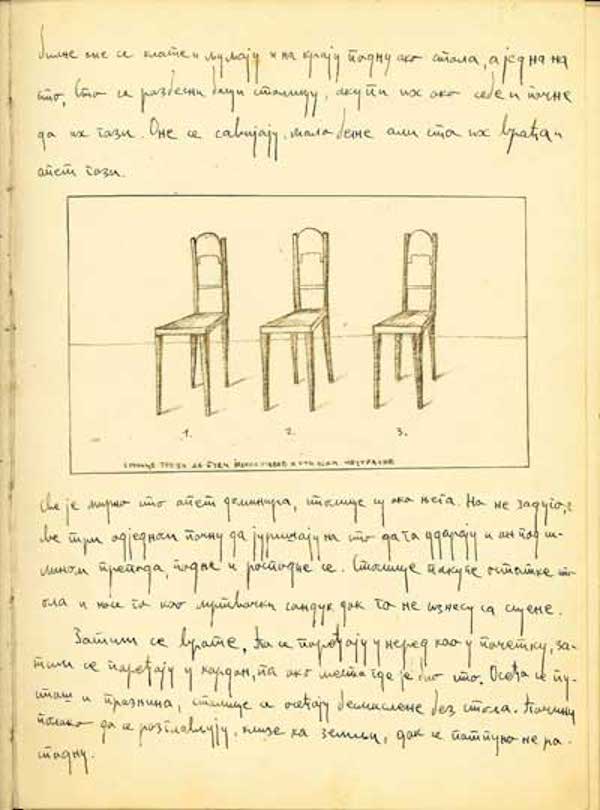 билне оне се клате и љуљају и на крају падну око стола, а једна на
сто, сто се разбесни баци столицу, окупи их око себе и почне
да их гази. Оне се савијају, мало беже али ста их врати и
опет гази.
1. 2. 3.
столице треба да буду једноставне
све је мирно сто опет доминира, столице су око њега. Но не задуго,
све три одједном почну да јуришају на сто да га ударају и он под
препода, падне и распадне се. Столице покупе остатке сто
ола и носе га као мртвачки сандук док га не изнесу са сцене.
Затим се врате, па се поређају у неред као у почетку, за-
тим се поређају у кордон, па око места где је био сто. Осећа се пу-
стош и празнина, столице се осећају бесмислене без стола. Почињу
полако да се расклапају, клизе ка земљи, док се потпуно не ра-
спадну.